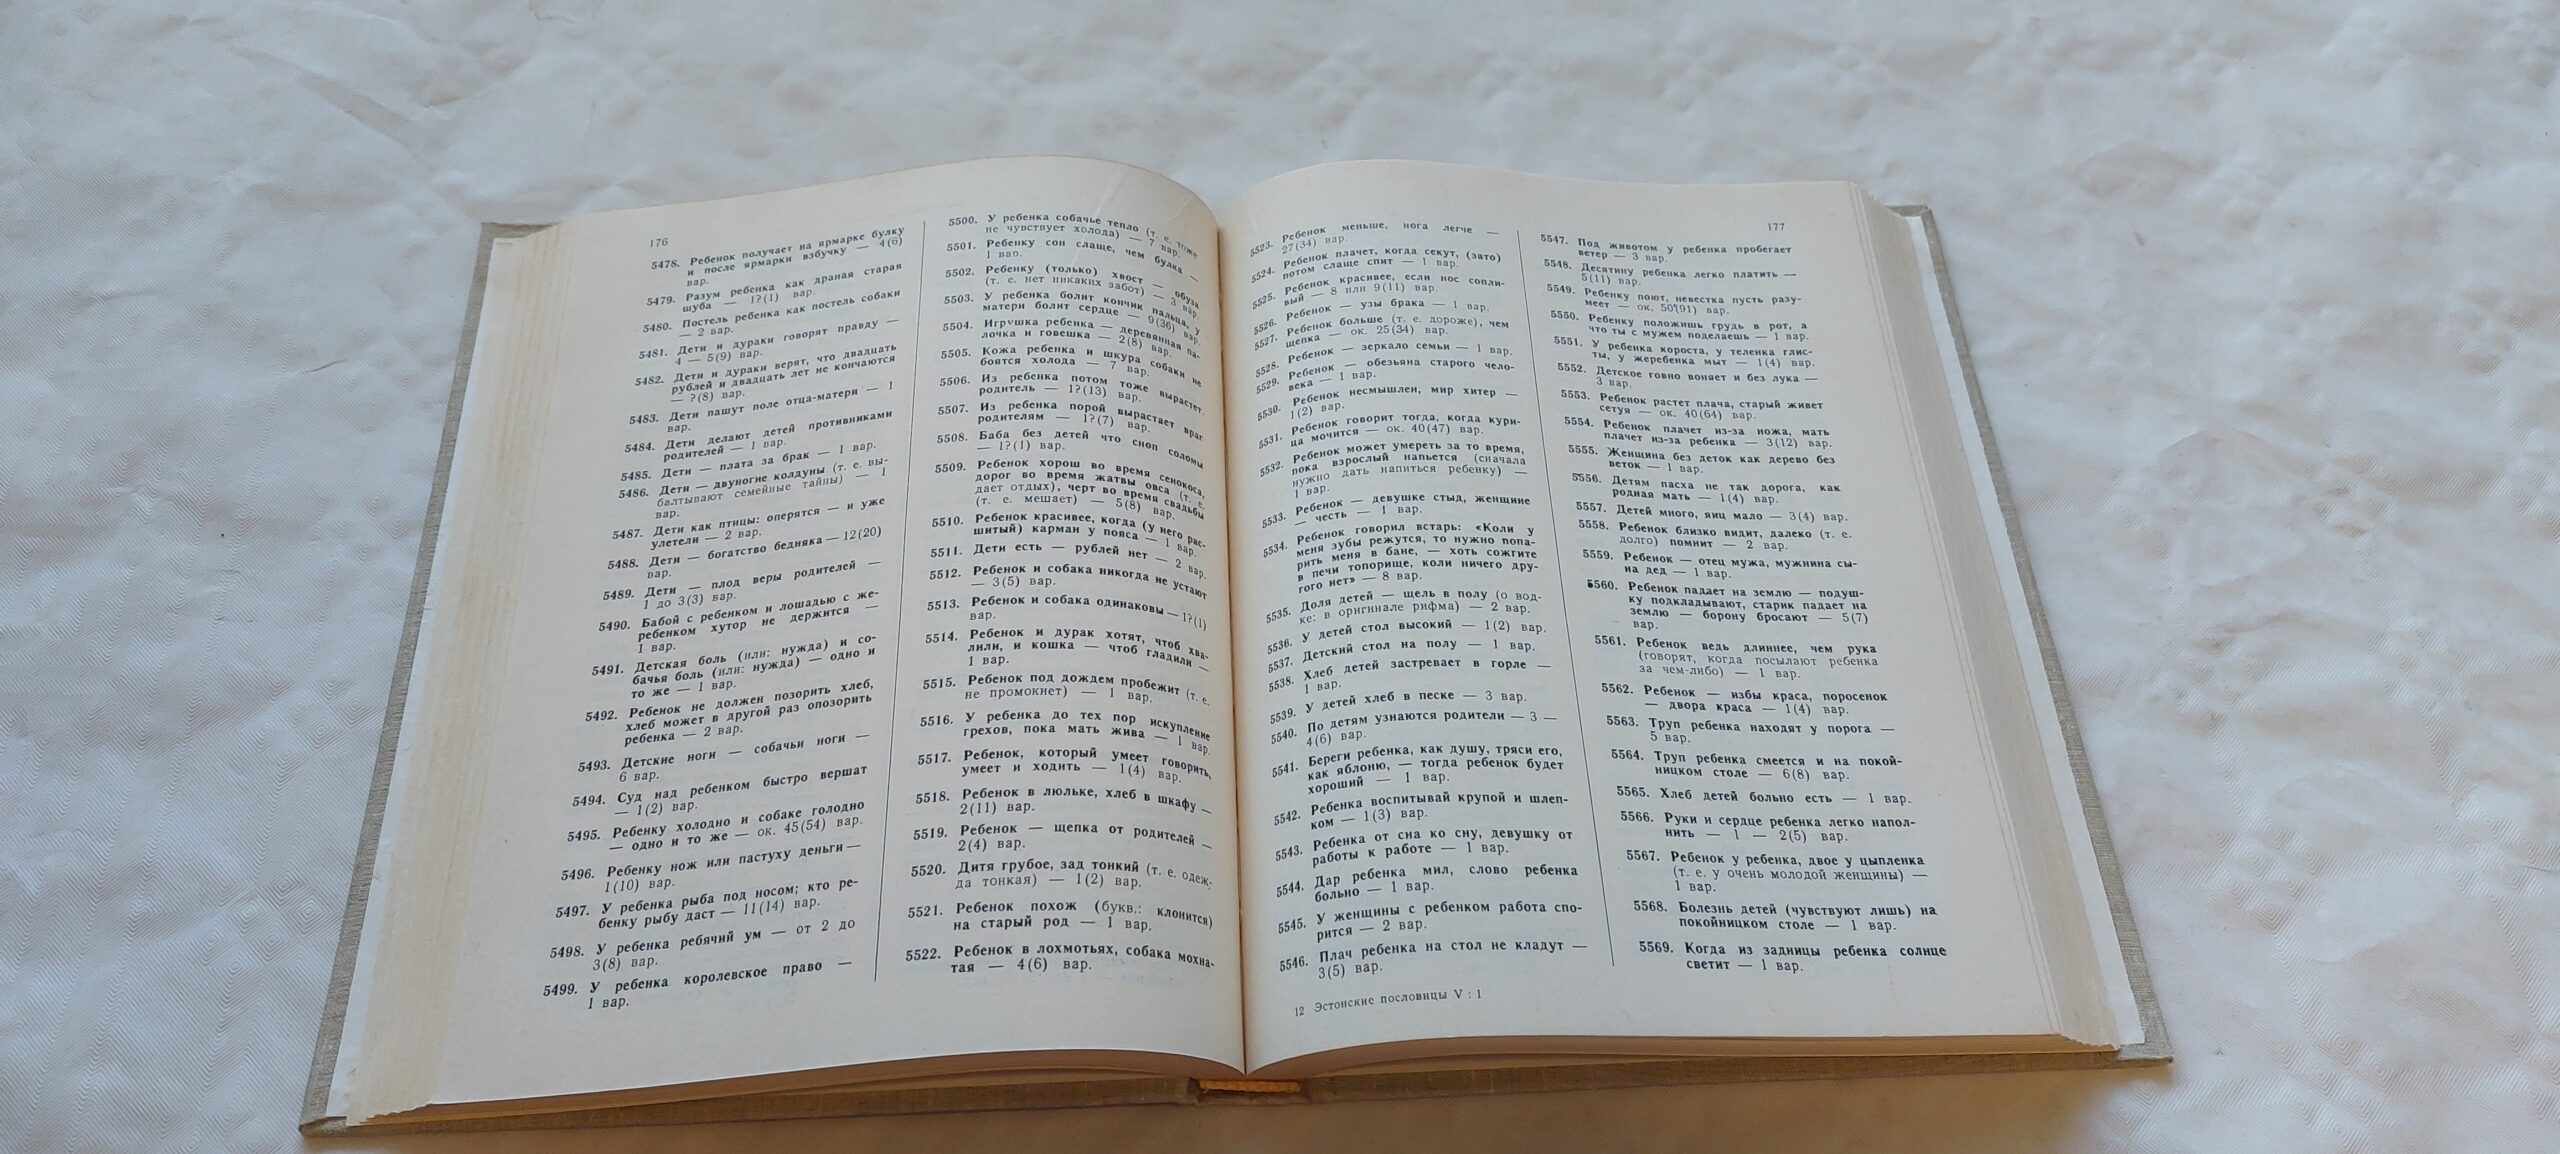 176
5478. Ребенок получает на ярмарке булку
и после ярмарки взбучку — 4(6)
вар.
5479. Разум ребенка как драная старая
шуба — 1?(1) вар.
5480. Постель ребенка как постель собаки
— 2 вар.
5481. Дети и дураки говорят правду —
4 — 5(9) вар.
5482. Дети и дураки верят, что двадцать
рублей и двадцать лет не кончаются
— ?(8) вар.
5483. Дети пашут поле отца-матери — 1
вар.
5484. Дети делают детей противниками
родителей — 1 вар.
5485. Дети — плата за брак — 1 вар.
5486. Дети — двуногие колдуны (т. е. вы-
балтывают семейные тайны) — 1
вар.
5487. Дети как птицы: оперятся — и уже
улетели — 2 вар.
5488. Дети — богатство бедняка — 12(20)
вар.
5489. Дети — плод веры родителей —
1 до 3(3) вар.
5490. Бабой с ребенком и лошадью с же-
ребенком хутор не держится —
1 вар.
5491. Детская боль (или: нужда) и со-
бачья боль (или: нужда) — одно и
то же — 1 вар.
5492. Ребенок не должен позорить хлеб,
хлеб может в другой раз опозорить
ребенка — 2 вар.
5493. Детские ноги — собачьи ноги —
6 вар.
5494. Суд над ребенком быстро вершат
— 1(2) вар.
5495. Ребенку холодно и собаке голодно
— одно и то же — ок. 45(54) вар.
5496. Ребенку нож или пастуху деньги —
1(10) вар.
5497. У ребенка рыба под носом; кто ре-
бенку рыбу даст — 11(14) вар.
5498. У ребенка ребячий ум — от 2 до
3(8) вар.
5499. У ребенка королевское право —
1 вар.
5500. У ребенка собачье тепло (т. е. тоже
не чувствует холода) — 7 вар.
5501. Ребенку сон слаще, чем булка —
1 вар.
5502. Ребенку (только) хвост — обуза
(т. е. нет никаких забот) — 3 вар.
5503. У ребенка болит кончик пальца, у
матери болит сердце — 9(36) вар.
5504. Игрушка ребенка — деревянная па-
лочка и говешка — 2(8) вар.
5505. Кожа ребенка и шкура собаки не
боятся холода — 7 вар.
5506. Из ребенка потом тоже вырастет
родитель — 1?(13) вар.
5507. Из ребенка порой вырастает враг
родителям — 1?(7) вар.
5508. Баба без детей что сноп соломы
— 1?(1) вар.
5509. Ребенок хорош во время сенокоса,
дорог во время жатвы овса (т. е.
дает отдых), черт во время свадьбы
(т. е. мешает) — 5(8) вар.
5510. Ребенок красивее, когда (у него рас-
шитый) карман у пояса — 1 вар.
5511. Дети есть — рублей нет — 2 вар.
5512. Ребенок и собака никогда не устают
— 3(5) вар.
5513. Ребенок и собака одинаковы — 1?(1)
вар.
5514. Ребенок и дурак хотят, чтоб хва-
лили, и кошка — чтоб гладили —
1 вар.
5515. Ребенок под дождем пробежит (т. е.
не промокнет) — 1 вар.
5516. У ребенка до тех пор искупление
грехов, пока мать жива — 1 вар.
5517. Ребенок, который умеет говорить,
умеет и ходить — 1(4) вар.
5518. Ребенок в люльке, хлеб в шкафу —
2(11) вар.
5519. Ребенок — щепка от родителей —
2(4) вар.
5520. Дитя грубое, зад тонкий (т. е. одеж-
да тонкая) — 1(2) вар.
5521. Ребенок похож (букв.: клонится)
на старый род — 1 вар.
5522. Ребенок в лохмотьях, собака мохна-
тая — 4(6) вар.
177
5523. Ребенок меньше, нога легче —
27(34) вар.
5524. Ребенок плачет, когда секут, (зато)
потом слаще спит — 1 вар.
5525. Ребенок красивее, если нос сопли-
вый — 8 или 9(11) вар.
5526. Ребенок — узы брака — 1 вар.
5527. Ребенок больше (т. е. дороже), чем
щепка — ок. 25(34) вар.
5528. Ребенок — зеркало семьи — 1 вар.
5529. Ребенок — обезьяна старого чело-
века — 1 вар.
5530. Ребенок несмышлен, мир хитер —
1(2) вар.
5531. Ребенок говорит тогда, когда кури-
ца мочится — ок. 40(47) вар.
5532. Ребенок может умереть за то время,
пока взрослый напьется (сначала
нужно дать напиться ребенку) —
1 вар.
5533. Ребенок — девушке стыд, женщине
— честь — 1 вар.
5534. Ребенок говорил встарь: «Коли у
меня зубы режутся, то нужно попа-
рить меня в бане, — хоть сожгите
в печи топорище, коли ничего дру-
гого нет» — 8 вар.
5535. Доля детей — щель в полу (о вод-
ке: в оригинале рифма) — 2 вар.
5536. У детей стол высокий — 1(2) вар.
5537. Детский стол на полу — 1 вар.
5538. Хлеб детей застревает в горле —
1 вар.
5539. У детей хлеб в песке — 3 вар.
5540. По детям узнаются родители — 3 —
4(6) вар.
5541. Береги ребенка, как душу, тряси его,
как яблоню, — тогда ребенок будет
хороший — 1 вар.
5542. Ребенка воспитывай крупой и шлеп-
ком — 1(3) вар.
5543. Ребенка от сна ко сну, девушку от
работы к работе — 1 вар.
5544. Дар ребенка мил, слово ребенка
больно — 1 вар.
5545. У женщины с ребенком работа спо-
рится — 2 вар.
5546. Плач ребенка на стол не кладут —
3(5) вар.
12 Эстонские пословицы V : 1
5547. Под животом у ребенка пробегает
ветер — 3 вар.
5548. Десятину ребенка легко платить —
5(11) вар.
5549. Ребенку поют, невестка пусть разу-
меет — ок. 50(91) вар.
5550. Ребенку положишь грудь в рот, а
что ты с мужем поделаешь — 1 вар.
5551. У ребенка короста, у теленка глис-
ты, у жеребенка мыт — 1(4) вар.
5552. Детское говно воняет и без лука —
3 вар.
5553. Ребенок растет плача, старый живет
сетуя — ок. 40(64) вар.
5554. Ребенок плачет из-за ножа, мать
плачет из-за ребенка — 3(12) вар.
5555. Женщина без деток как дерево без
веток — 1 вар.
5556. Детям пасха не так дорога, как
родная мать — 1(4) вар.
5557. Детей много, яиц мало — 3(4) вар.
5558. Ребенок близко видит, далеко (т. е.
долго) помнит — 2 вар.
5559. Ребенок — отец мужа, мужнина сы-
на дед — 1 вар.
5560. Ребенок падает на землю — подуш-
ку подкладывают, старик падает на
землю — борону бросают — 5(7)
вар.
5561. Ребенок ведь длиннее, чем рука
(говорят, когда посылают ребенка
за чем-либо) — 1 вар.
5562. Ребенок — избы краса, поросенок
— двора краса — 1(4) вар.
5563. Труп ребенка находят у порога —
5 вар.
5564. Труп ребенка смеется и на покой-
ницком столе — 6(8) вар.
5565. Хлеб детей больно есть — 1 вар.
5566. Руки и сердце ребенка легко напол-
нить — 1 — 2(5) вар.
5567. Ребенок у ребенка, двое у цыпленка
(т. е. у очень молодой женщины) —
1 вар.
5568. Болезнь детей (чувствуют лишь) на
покойницком столе — 1 вар.
5569. Когда из задницы ребенка солнце
светит — 1 вар.